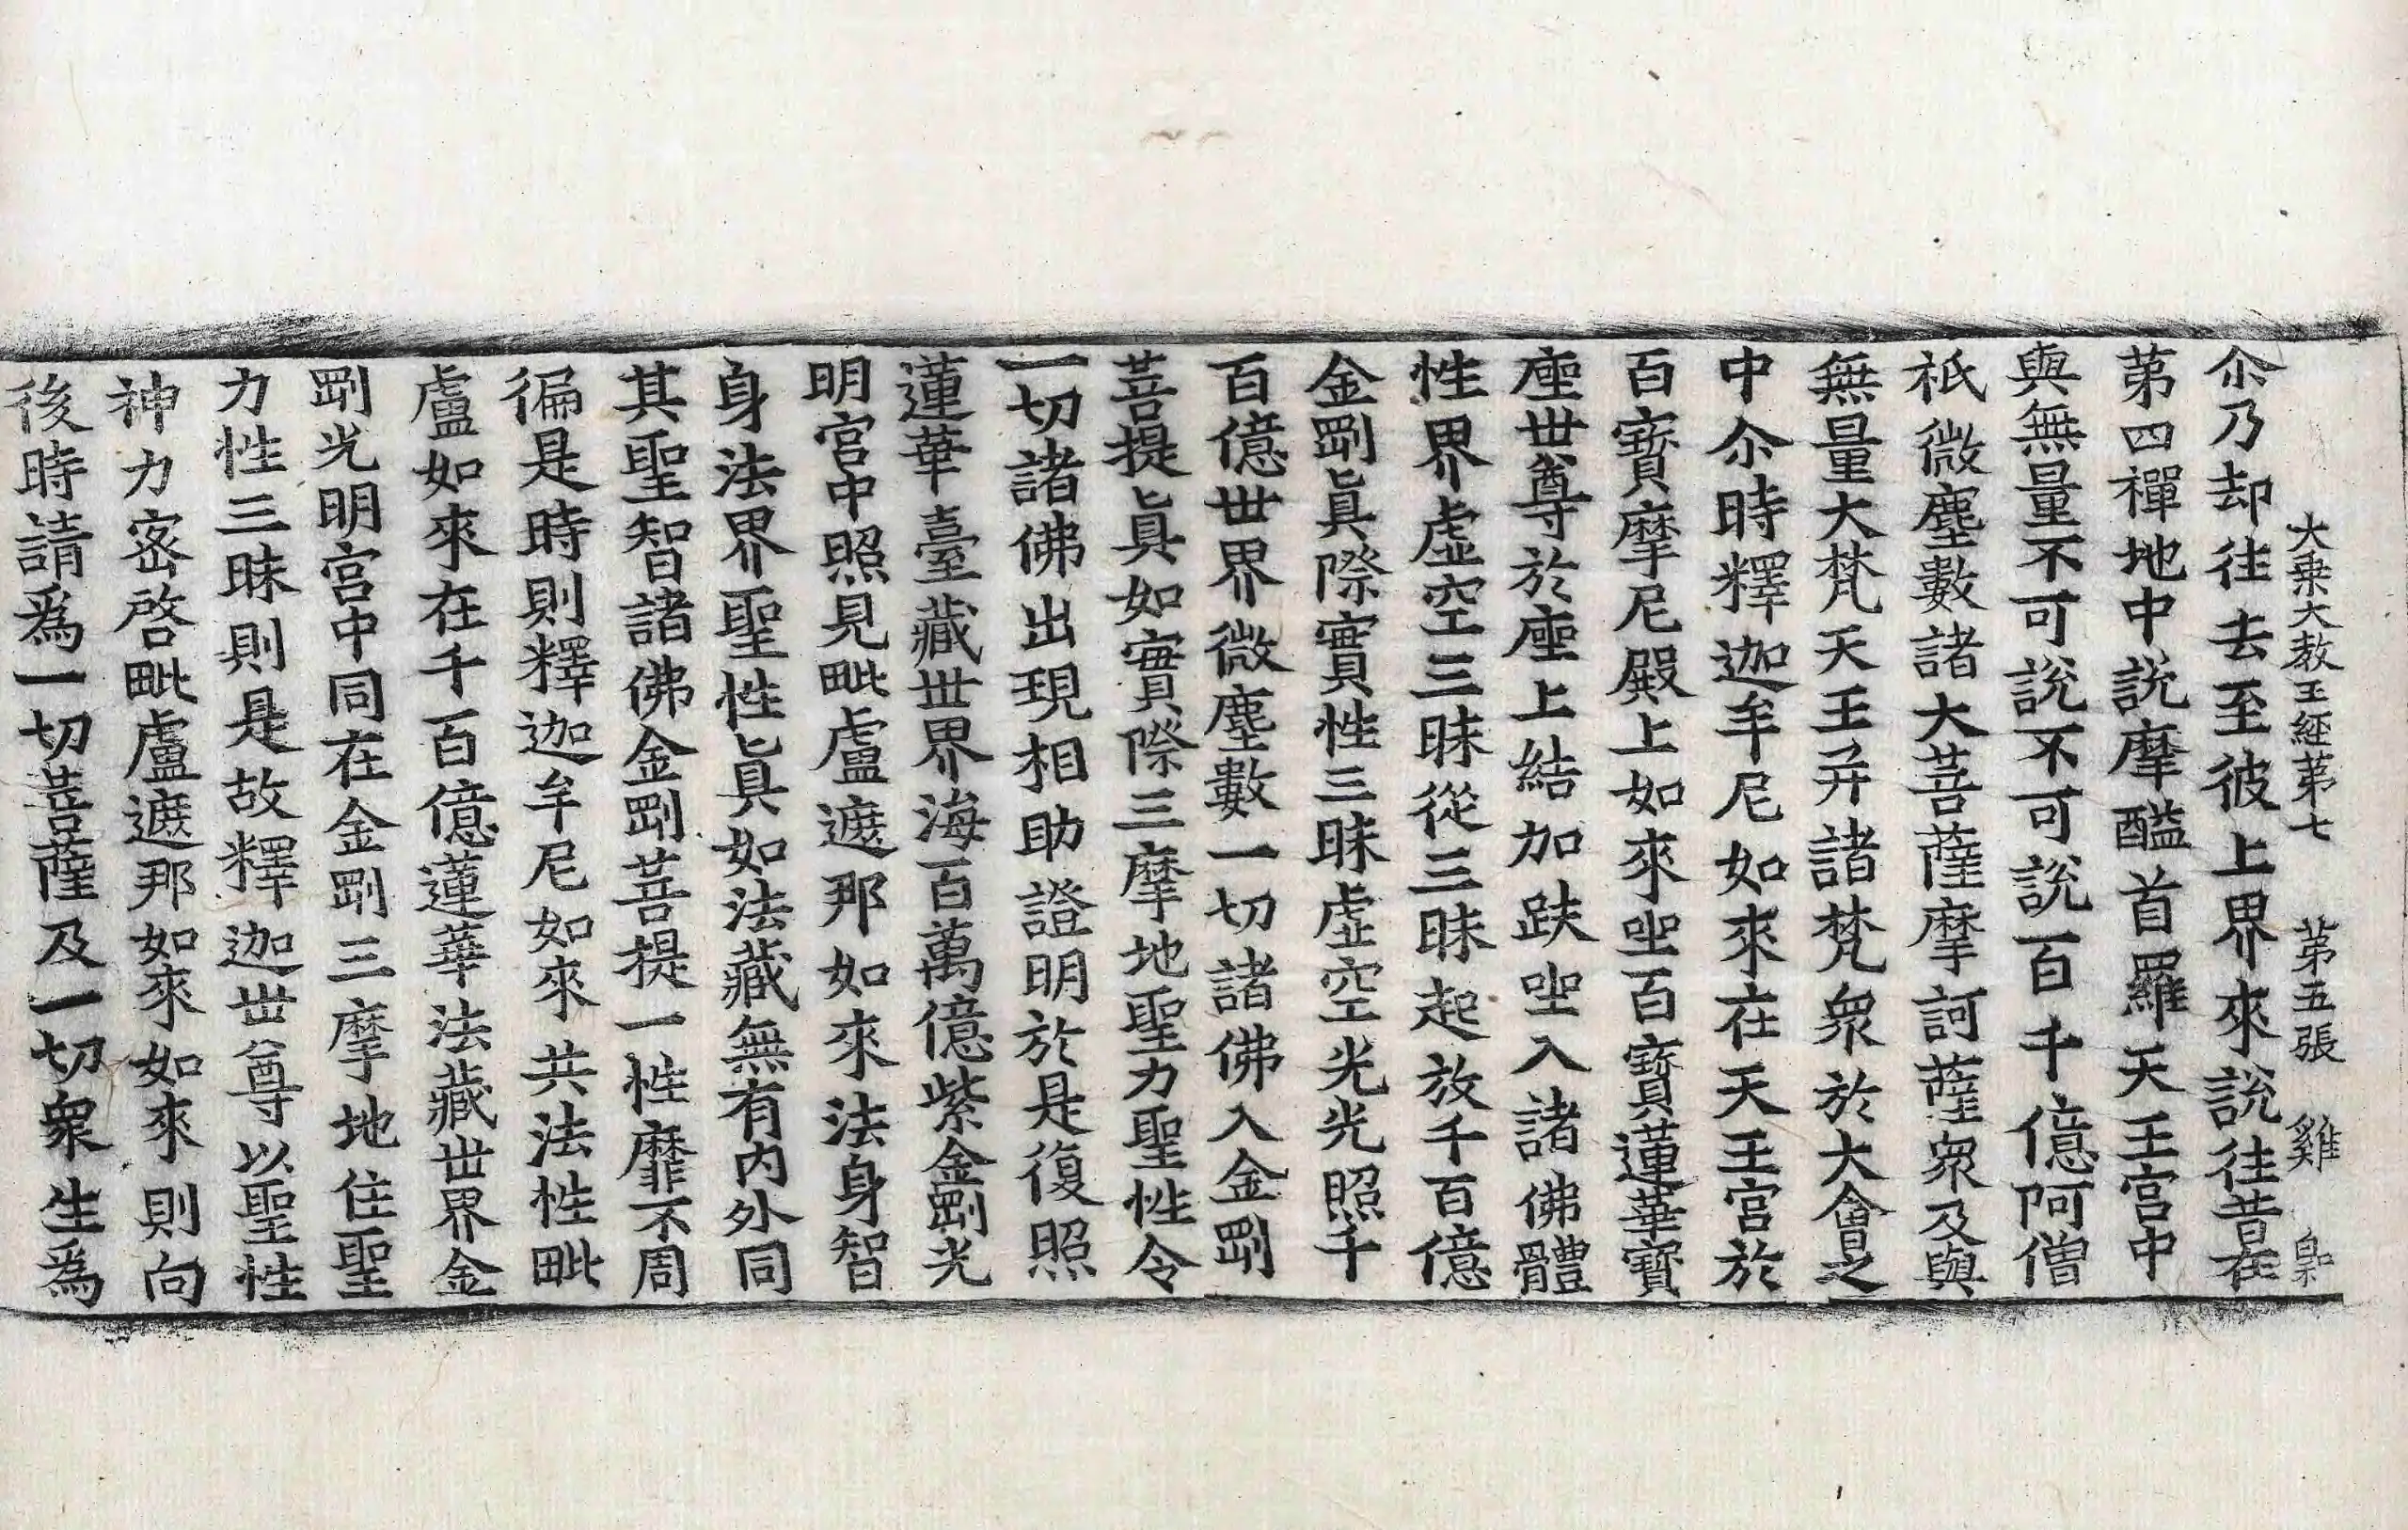 大乗大教王經第七 第五張 雞
尒乃却往去至彼上界來說往昔在
苐四禪地中說摩醯首羅天王宮中
與無量不可說不可說百千億阿僧
祇微塵數諸大菩薩摩訶薩衆及與
無量大梵天王幷諸梵衆於大會之
中尒時釋迦牟尼如來在天王宮於
百寶摩尼殿上如來坐百寶蓮華寶
座世尊於座上結加趺坐入諸佛體
性界虛空三昧從三昧起放千百億
金剛眞際實性三昧虛空光光照千
百億世界微塵數一切諸佛入金剛
菩提眞如實際三摩地聖力聖性令
一切諸佛出現相助證明於是復照
蓮華臺藏世界海百萬億紫金剛光
明宮中照見毗盧遮那如來法身智
身法界聖性眞如法藏無有內外同
其聖智諸佛金剛菩提一性靡不周
徧是時則釋迦牟尼如來共法性毗
盧如來在千百億蓮華法藏世界金
剛光明宮中同在金剛三摩地住聖
力性三昧則是故釋迦世尊以聖性
神力密啓毗盧遮那如來如來則向
後時請爲一切菩薩及一切衆生爲